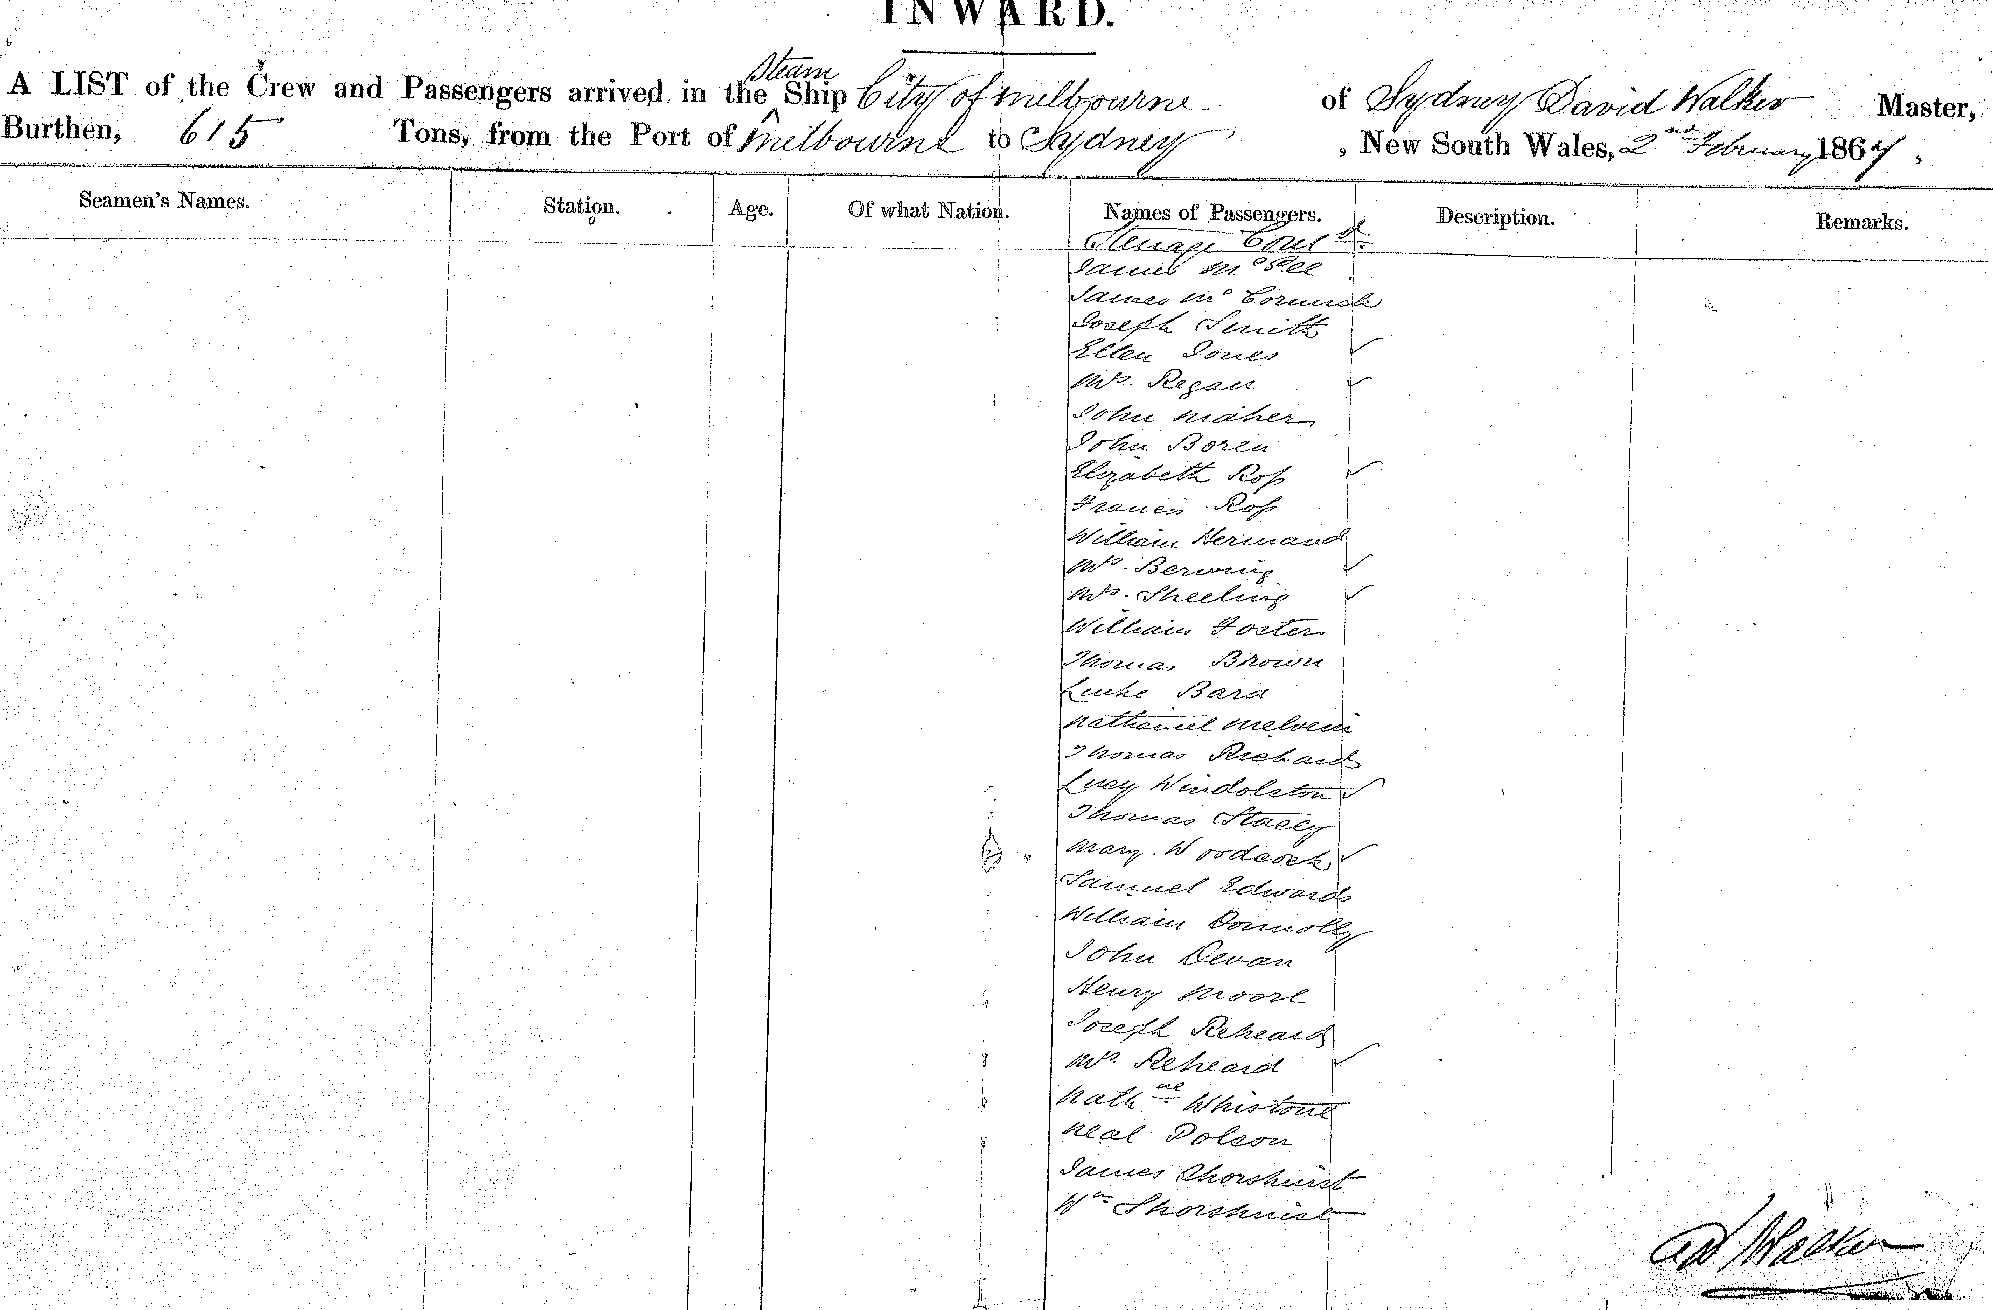 INWARD.
Steam
A LIST of the Crew and Passengers arrived in the Ship City of Melbourne of Sydney David Walker Master,
Burthen, 615 Tons, from the Port of Melbourne to Sydney, New South Wales, 2nd February 1864,
Seamen's Names. Station. Age. Of what Nation. Names of Passengers. Description. Remarks.
Steerage Cont'd
James
James Mc Cormick
Joseph Smith
Ellen Jones
Mrs. Regan
John Maher
John Boren
Elizabeth Ross
Francis Ross
William Hermand
Mrs. Berwing
Mrs. Sheeling
William Foster
Thomas Brown
Luke Bard
Nathaniel Melvein
Thomas Richard
Lucy Windolston
Thomas Stacey
Mary Woodcock
Samuel Edwards
William Connolly
John Devan
Henry Moore
Joseph Reheard
Mrs. Reheard
Nathnel Whistone
Neal Polson
James Shorshurst
Wm Shorshurst
Walker